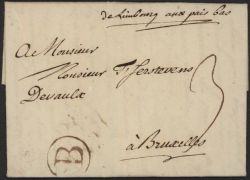 de Limbourg aux païs bas
A Monsieur
Monsieur T'Serstevens
Devaulx
à Bruxelles
3
B